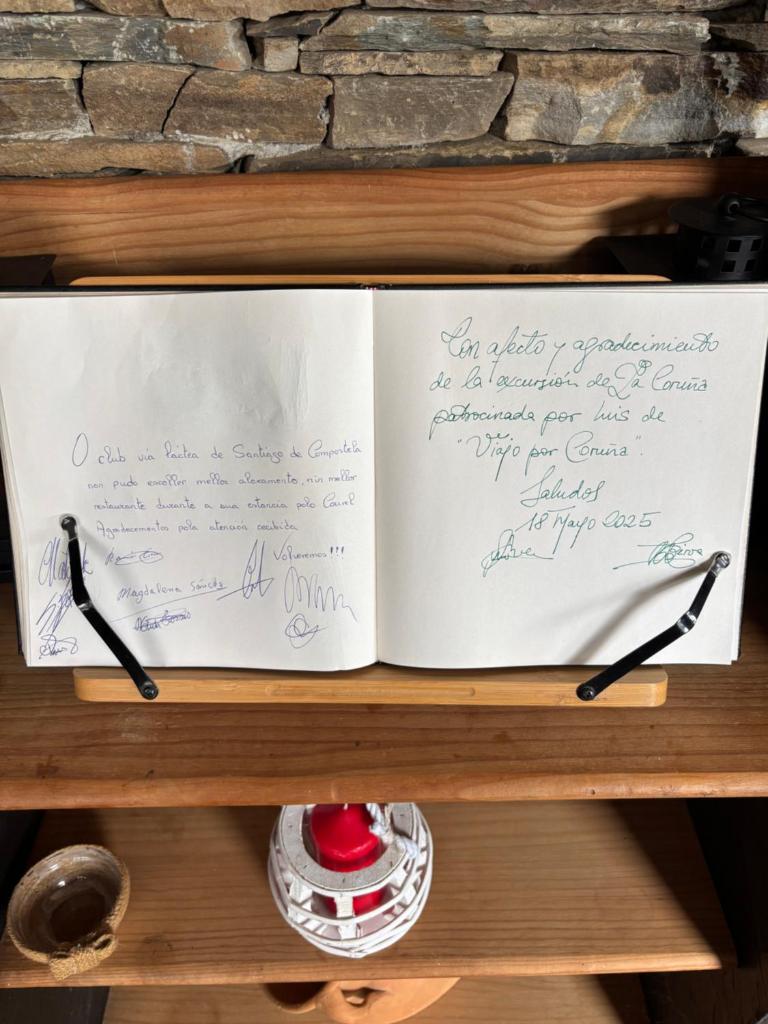 O club vía láctea de Santiago de Compostela
non pudo escoller mellor aloxamento, nin mellor
restaurante durante a sua estancia polo Courel
Agradecementos pola atención recibida
Volveremos!!!
Magdalena Sánchez
Con afecto y agradecimiento
de la excursión de Lª Coruña
patrocinada por Luis de
"Viajo por Coruña".
Saludos
18 Mayo 2025